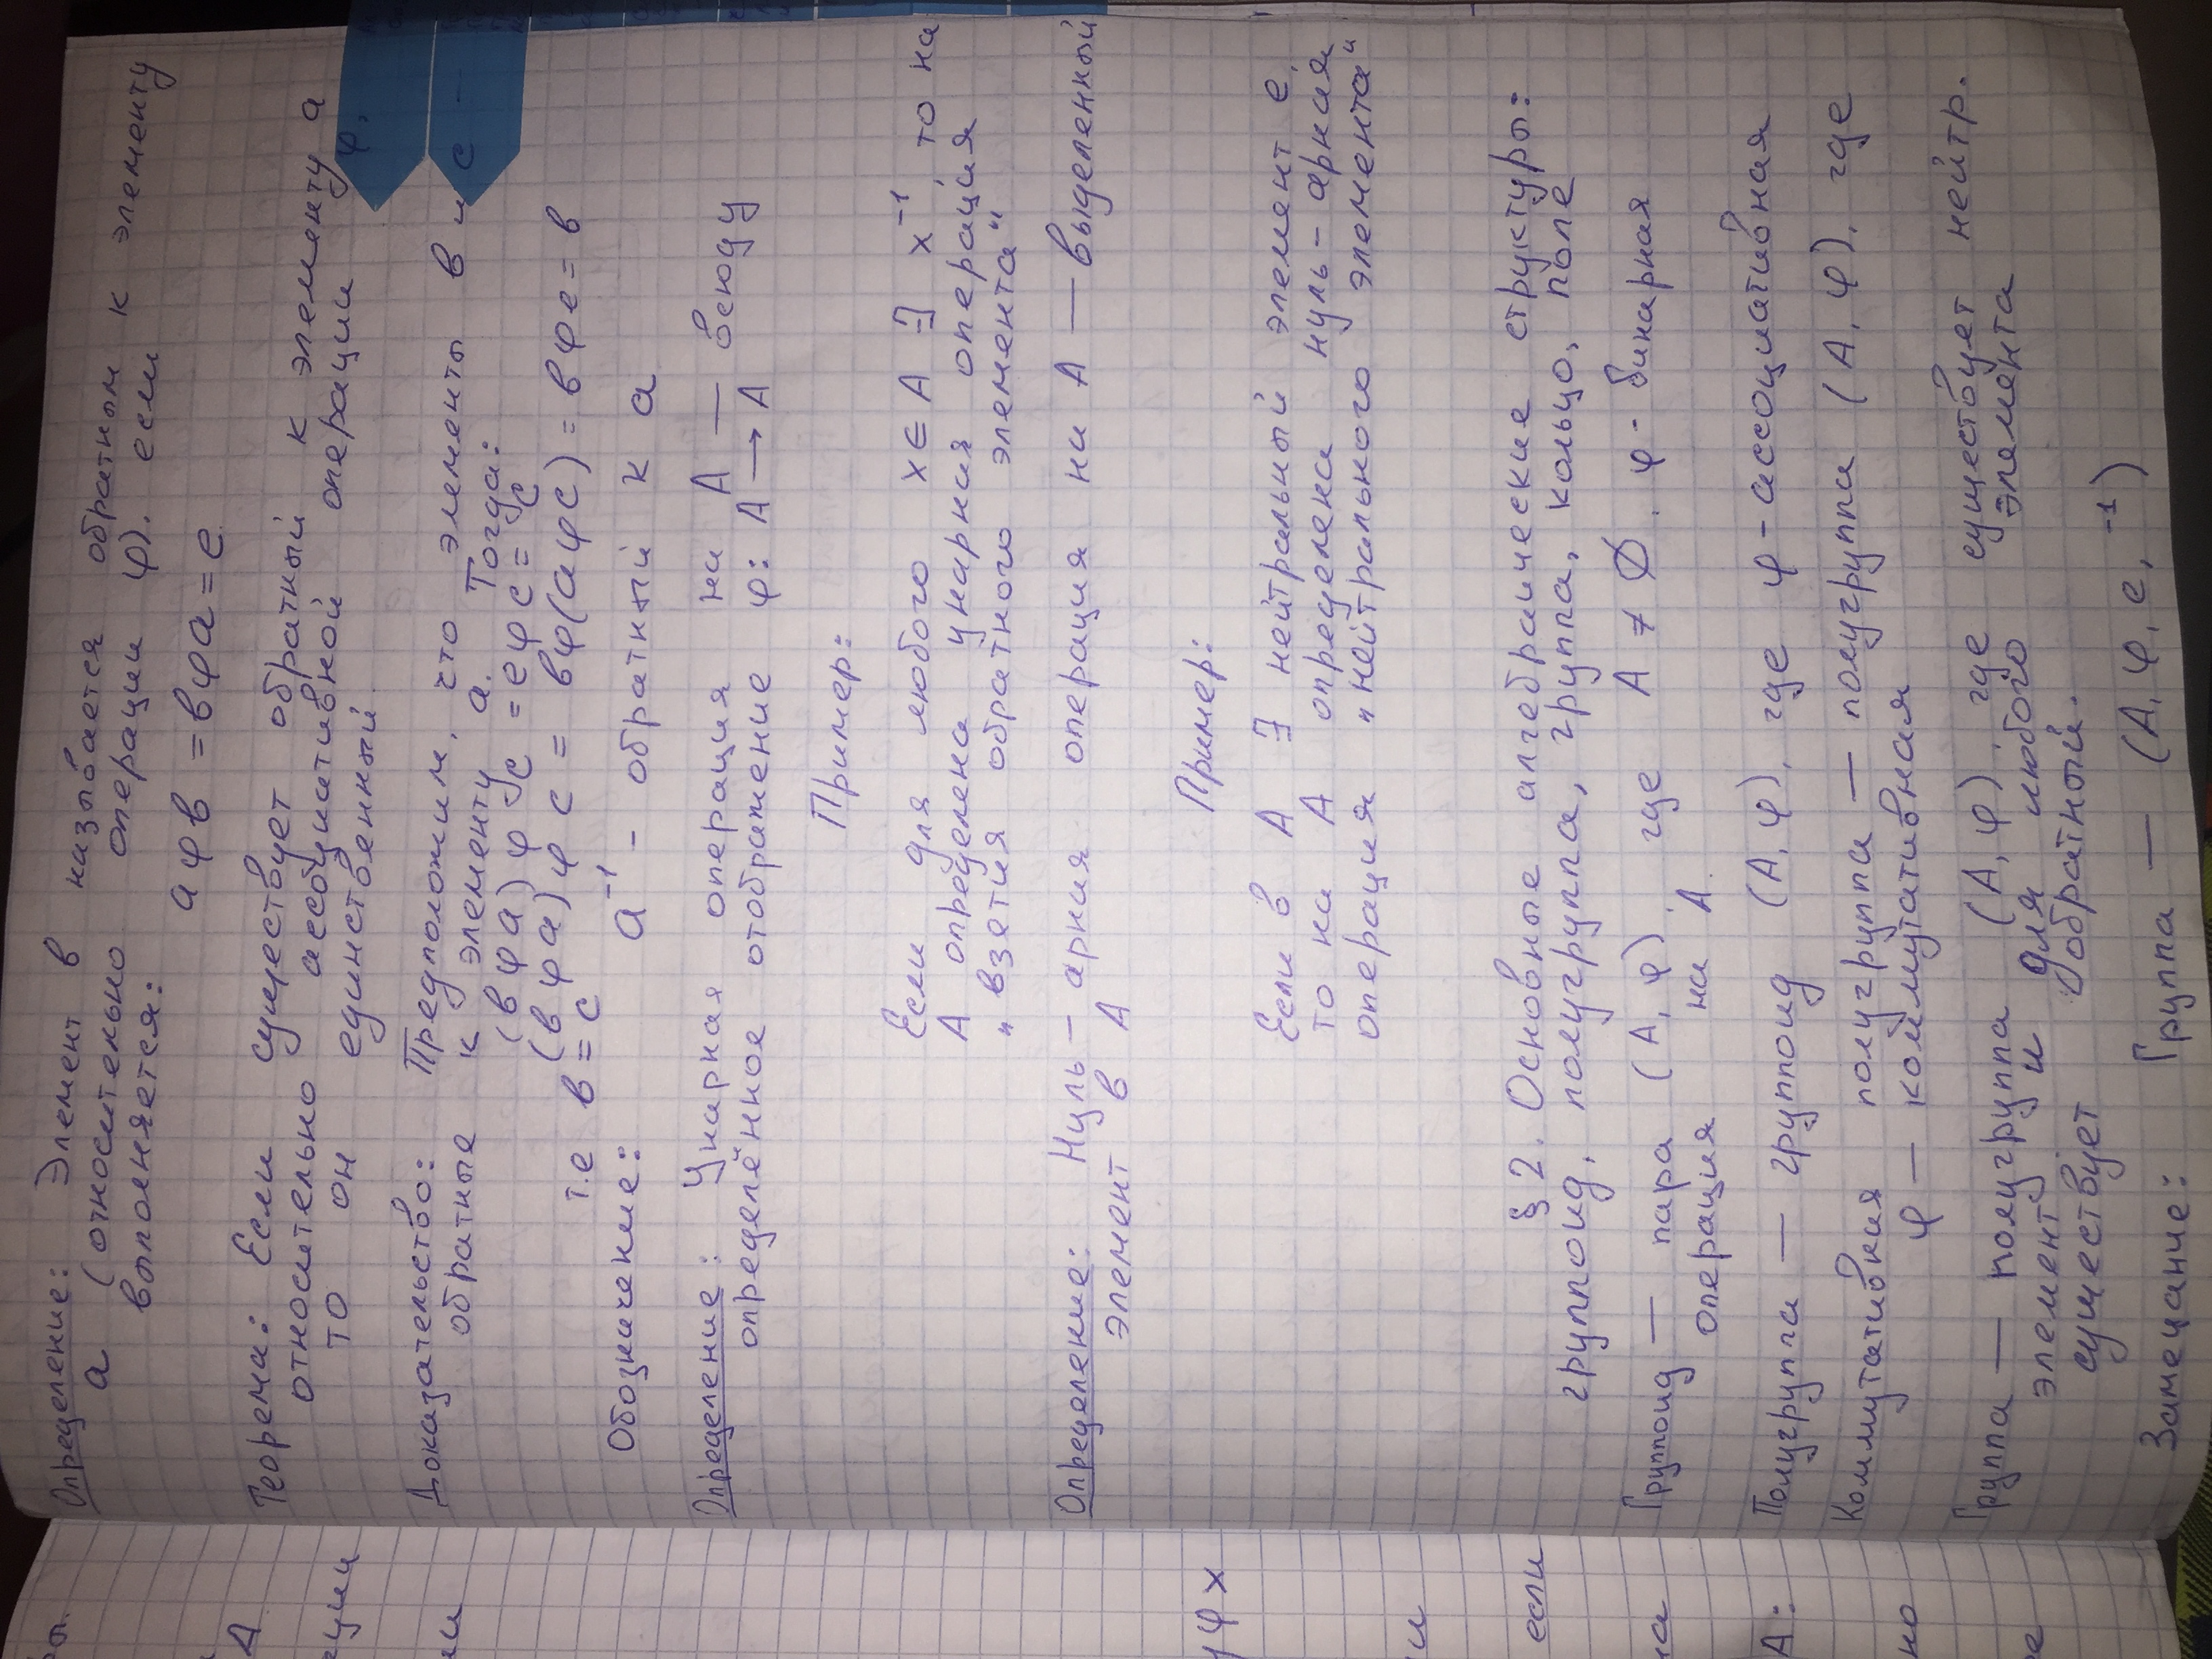 Определение: Элемент в называется обратным к элементу
а (относительно операции φ). если
выполняется:
aφв = вφa = e.
Теорема: Если существует обратный к элементу а
относительно ассоциативной операции φ,
то он единственный.
Доказательство: Предположим, что элементы в и с —
обратные к элементу а. Тогда:
(вφa)φ c = eφc = c
(вφa)φ c = вφ(aφc) = вφe = в
т.е в = с
Обозначение: a⁻¹ - обратный к а
Определение: Унарная операция на А — всюду
определённое отображение φ: A → A
Пример:
Если для любого x ∈ A ∃ x⁻¹, то на
А определена унарная операция
„взетия обратного элемента“
Определение: Нуль - арная операция на А — выделенный
элемент в А
Пример:
Если в А ∃ нейтральный элемент е,
то на А определена нуль - арная
операция „нейтрального элемента“
§ 2. Основные алгебраические структуры:
группоид, полугруппа, группа, кольцо, поле
Группоид — пара (А, φ), где А ≠ ∅, φ - бинарная
операция на А.
Полугруппа — группоид (А, φ), где φ - ассоциативная
Коммутативная полугруппа — полугруппа (А, φ), где
φ — коммутативная
Группа — полугруппа (А, φ), где существует нейтр.
элемент и для любого элемента
существует обратный.
Замечание: Группа — (А, φ, е, ⁻¹)
ры.
А
ации
ии
уφх
ии
если
на
А:
но
е